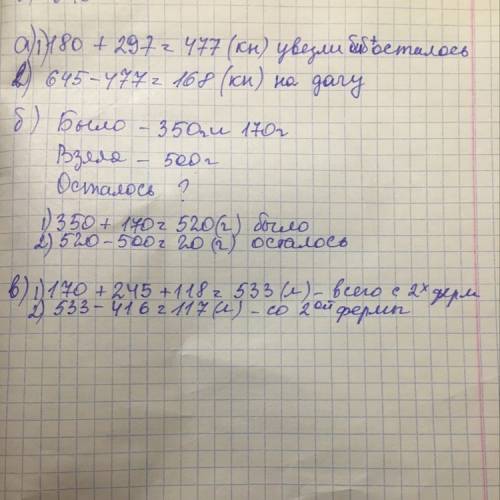 а) 1) 180 + 297 = 477 (кн) увезли осталось
2) 645 - 477 = 168 (кн) на дачу
б) Было - 350г и 170г
Взяла - 500г
Осталось ?
1) 350 + 170 = 520 (г) было
2) 520 - 500 = 20 (г) осталось
в) 1) 170 + 245 + 118 = 533 (л) - всего с 2х ферм
2) 533 - 416 = 117 (л) - со 2ой фермы